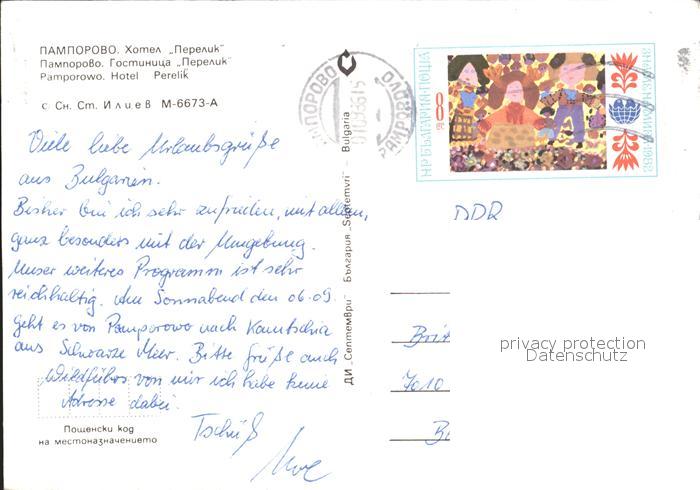 ПАМПОРОВО. Хотел „Перелик"
Пампорово. Гостиница „Перелик"
Pamporowo. Hotel Perelik
с Сн. Ст. Илиев М-6673-А
Viele liebe Urlaubsgrüße
aus Bulgarien.
Bisher bin ich sehr zufrieden, mit allem,
ganz besonders mit der Umgebung.
Unser weiteres Programm ist sehr
reichhaltig. Am Sonnabend den 06.09.
geht es von Pamporowo nach Kamtschia
ans Schwarze Meer. Bitte grüße auch
von mir ich habe keine
Adresse dabei.
Tschüß
Uwe
Пощенски код
на местоназначението
ДИ „Септември" България „Septemvri" Bulgaria
ПАМПОРОВО
PAMPOROVO
НР БЪЛГАРИЯ·ПОЩА
8 ст
DDR
7010
privacy protection
Datenschutz